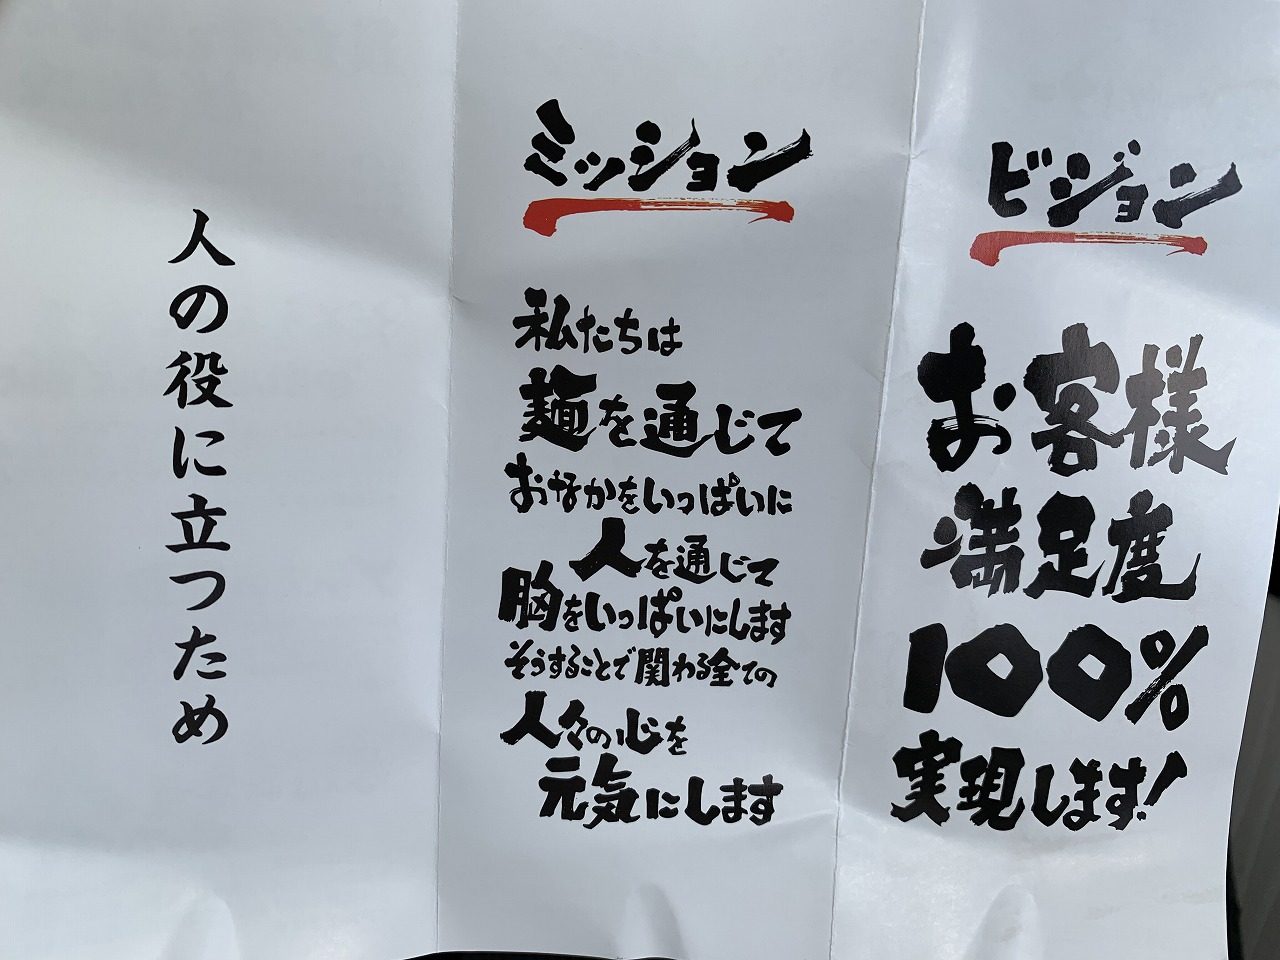 人の役に立つため
ミッション
私たちは
麺を通じて
おなかをいっぱいに
人を通じて
胸をいっぱいにします
そうすることで関わる全ての
人々の心を
元気にします
ビジョン
お客様
満足度
100%
実現します!